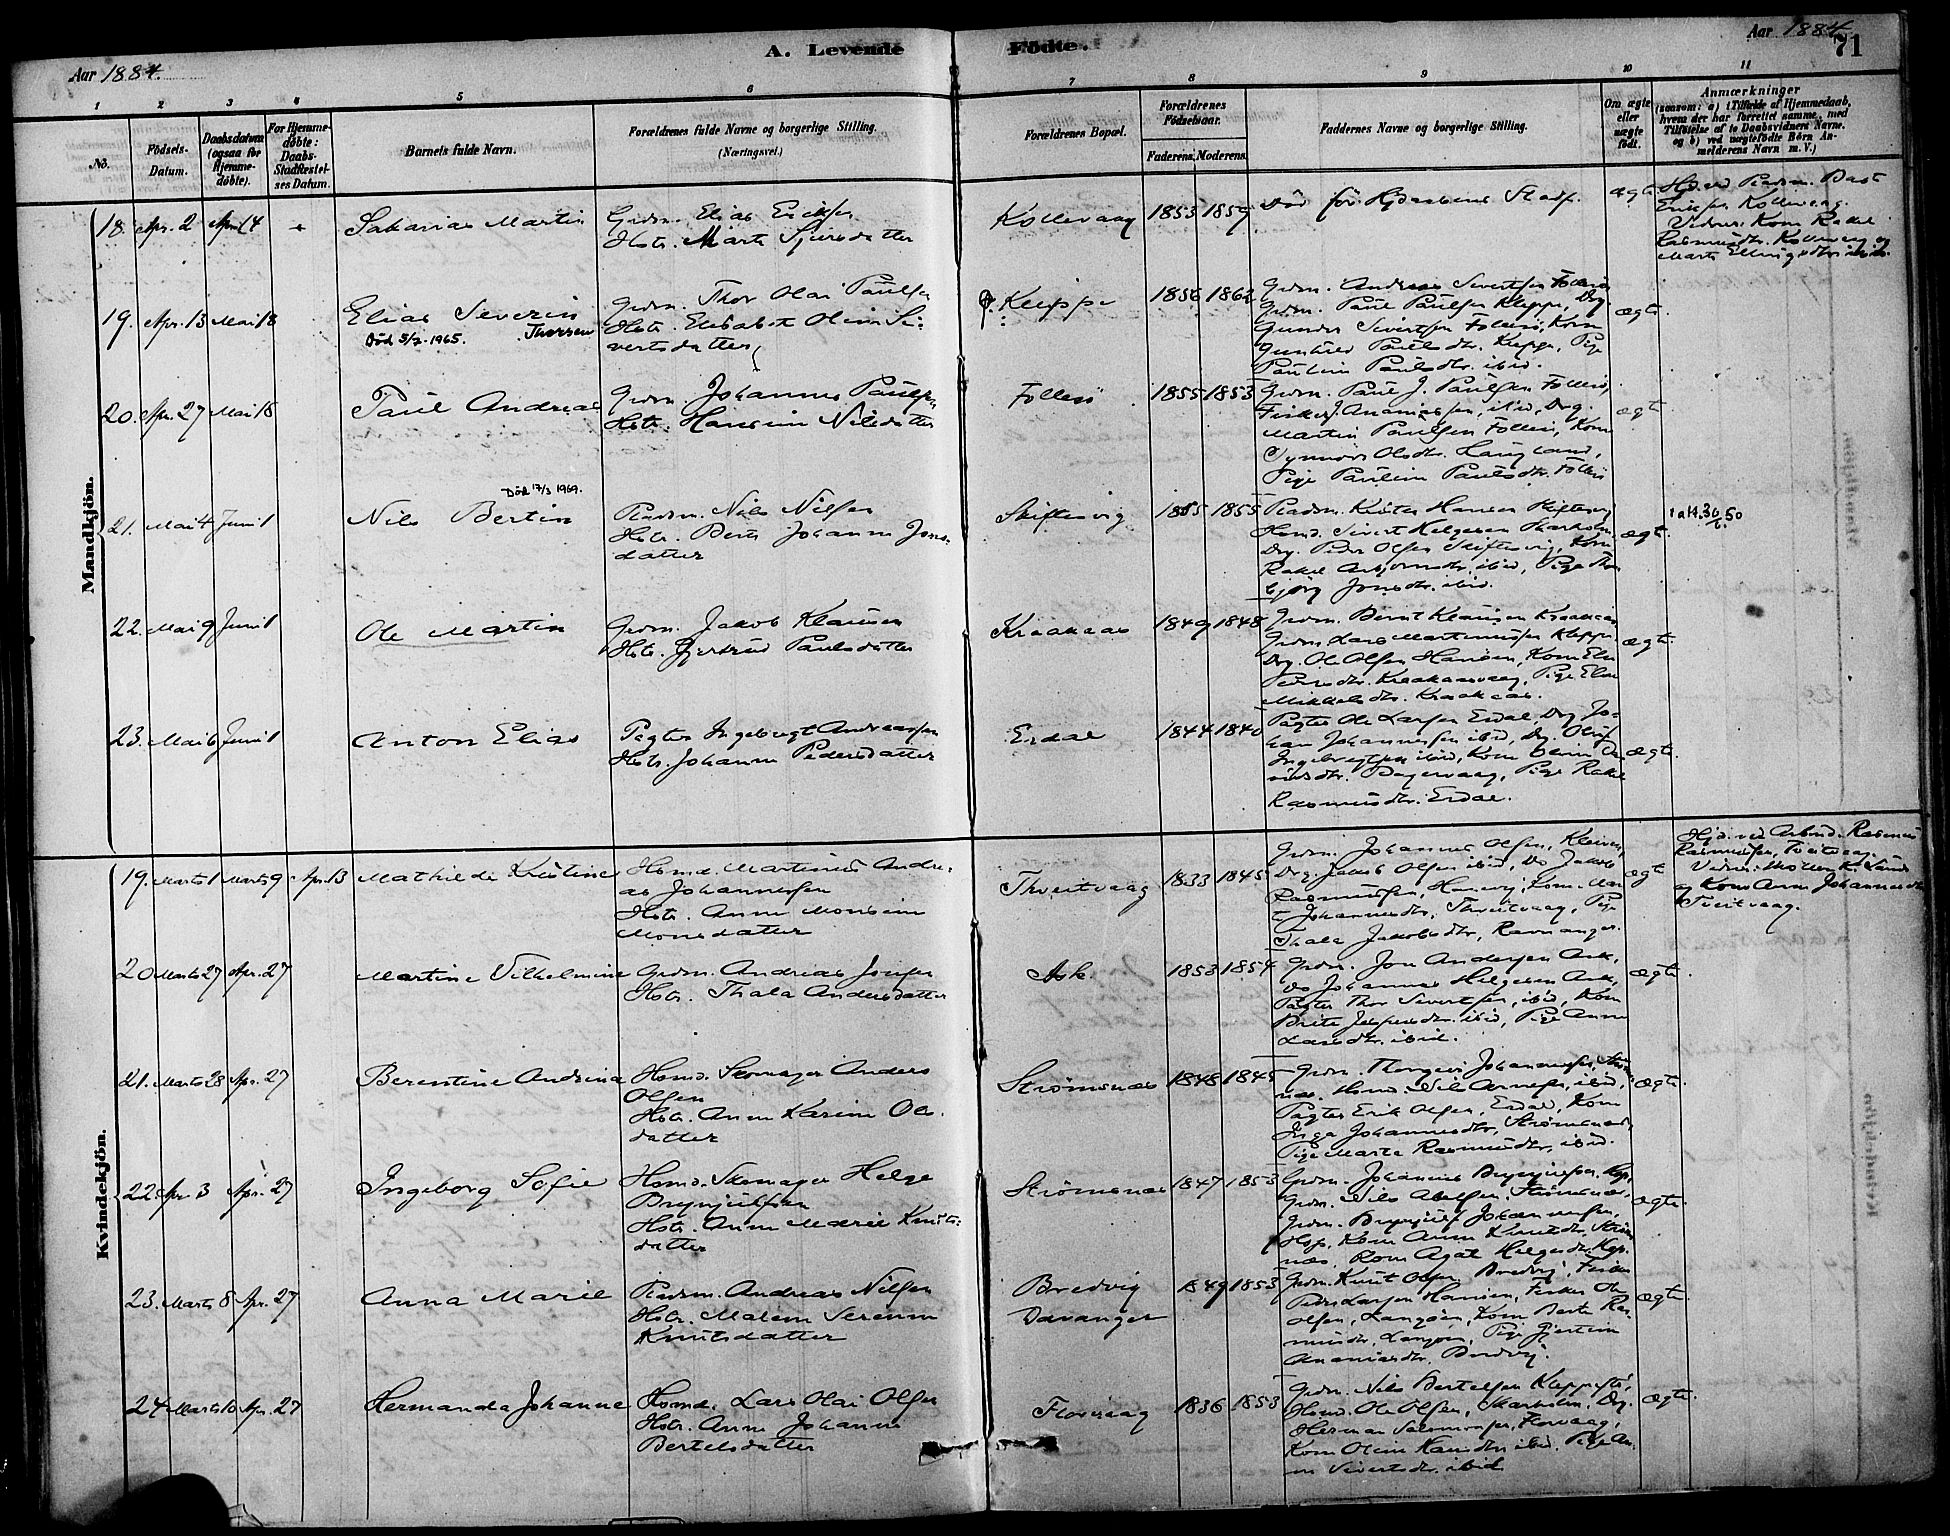 Aar 1884.
A. Levende
Fødte.
Aar 1884
71
1 2 3 4 5 6 7 8 9 10 11
No.
Fødsels-
Datum.
Daabsdatum
(ogsaa for
Hjemme-
døbte).
For Hjemme-
døbte:
Daabs-
Stadfæstel-
ses Datum.
Barnets fulde Navn.
Forældrenes fulde Navne og borgerlige Stilling.
(Næringsvei.)
Forældrenes Bopæl.
Forældrenes
Fødselsaar.
Faderens. Moderens.
Faddernes Navne og borgerlige Stilling.
Om ægte
eller
uægte
født.
Anmærkninger
(saasom: a) i Tilfælde af Hjemmedaab,
hvem der har forrettet samme, med
Tilføielse af to Daabsvidners Navne.
og b) ved uægtefødte Børn An-
melderens Navn m. V.)
Mandkjön.
18. Apr. 2 Apr. 4
Sakarias Martin
Grdm. Elias Eriksen
Hstr. Marta Sjursdatter
Kollevaag
1853 1859
Død før Hjdaabens Stadf.
ægt
Rasmusdtr. Kollevaag og
19. Apr. 13 Mai 18
Elias Severin
Død 5/2-1965. Thorsen
Grdm. Thor Olai Paulsen
Hstr. Elisabet Olina Si-
vertsdatter
Kleppe
1856 1862
Grdm. Andreas Sivertsen Follesø
Grdm. Paul Paulsen Kleppe, Drg.
Gunder Sivertsen Follesø, Kone
Gunhild Paulsdtr. Kleppe, Pige
Paulina Paulsdtr. ibid.
ægte
20. Apr. 27 Mai 18
Paul Andreas
Grdm. Johannes Paulsen
Hstr. Hansine Nilsdatter
Follesø
1855 1853
Grdm. Paul J. Paulsen Follesø,
Fisker J. Ananiassen, ibid, Drg.
Martin Paulsen Follesø, Kone
Synnøve Olsdtr. Langeland,
Pige Paulina Paulsdtr. Follesø
ægte
21. Mai 4 Juni 1
Død 17/3 1969.
Nils Bertin
Pladsm. Nils Nilsen
Hstr. Berte Johanne Jons-
datter
Skiftesvig
1855 1855
Pladsm. Knut Hansen Skiftesvig
Husmd. Sivert Helgesen Skarholm
Drg. Peder Olsen Skiftesvig, Kone
Rakel Asbjørnsdtr. ibid, Pige Thor-
bjørg Jonsdtr. ibid.
ægte
22. Mai 9 Juni 1
Ole Martin
Grdm. Jakob Klausen
Hstr. Gjertrud Paulsdatter
Kraakaas
1849 1848
Grdm. Bernt Klausen Kraakaas
Grdm. Lars Martinussen Kleppe
Drg. Ole Olsen Hanøen, Kone Elen
Pedersdtr. Kraakaasvaag, Pige Elen
Mikkelsdtr. Kraakaas.
ægte
23. Mai 6 Juni 1
Anton Elias
Pagter Ingebrigt Andreassen
Hstr. Johanne Pedersdatter
Erdal
1844 1840
Pagter Ole Larsen Erdal, Drg. Jo-
han Johannessen ibid, Drg. Oluf
Ingebrigtsen ibid, Kone
Rasmusdtr. Erdal.
ægte
Kvindekjön.
19. Marts 1 Marts 9 Apr. 13
Mathilde Kristine
Husmd. Martinus Andre-
as Johannessen
Hstr. Anne Monsine
Monsdatter
Thveitvaag
1833 1845
Grdm. Johannes Olsen, Kleiven,
Drg. Jakob Olsen ibid, Do Jakob
Rasmussen, Hanevig, Kone Mar-
ta Johannesdtr, Thveitvaag, Pige
Thala Jakobsdtr, Ravnanger.
ægt
Hjd. ved Arbmd. Rasmus
Rasmussen, Tveitvaag.
og Kone Anne Johannesdtr
Tveitvaag.
20 Marts 27 Apr. 27
Martine Vilhelmine
Grdm. Andreas Jonsen
Hstr. Thala Andersdatter
Ask
1853 1854
Grdm. Jon Andersen Ask,
Do Johannes Helgesen Ask,
Pagter Thor Sivertsen, ibid, Kone
Brite Jespersdtr. ibid, Pige Anne
Larsdtr. ibid.
ægte
21. Marts 28 Apr. 27
Berentine Andrina
Husmd. Skomager Anders
Olsen
Hstr. Anne Karine Ols-
datter
Strømsnæs
1848 1845
Grdm. Thorgeir Johannessen, Strøms-
næs. Husmd. Nils Arnesen, ibid,
Pagter Erik Olsen, Erdal, Kone
Inga Johannesdtr, Strømsnæs,
Pige Marta Rasmusdtr, ibid.
ægte
22 Apr. 3 Apr. 27
Ingeborg Sofie
Husmd. Skomager Helge
Brynjulfsen
Hstr. Anne Marie Knuts-
datter
Strømsnæs
1847 1853
Grdm. Johannes Brynjulfsen Hop,
Grdm. Nils Abelsen, Strømsnæs,
Grdm. Brynjulf Johannessen,
Hop, Kone Anne Knutsdtr. Strøms-
næs, Kone Agat Helgesdtr. Hop.
ægte
23. Marts 8 Apr. 27
Anna Marie
Pladsm. Andreas Nilsen
Hstr. Malene Serenna
Knutsdatter
Bredvig
Davanger
1849 1853
Grdm. Knut Olsen Bredvig, Fisker
Peder Larsen Hanøen, Fisker Ole
Olsen, Langøen, Kone Berte Ras-
musdtr, Langøen, Pige Gjertine
Ananiasdtr. Bredvig.
ægte
24 Marts 10 Apr. 27
Hermanda Johanne
Husmd. Lars Olai Olsen
Hstr. Anne Johanne
Bertelsdatter
Florvaag
1836 1853
Grdm. Nils Bertelsen Kleppestø,
Husmd. Ole Olsen, Skarholm, Drg.
Herman Salomonsen, Florvaag,
Kone Oline Hansdtr. ibid. Pige An-
ne Sivertsdtr. ibid
ægte